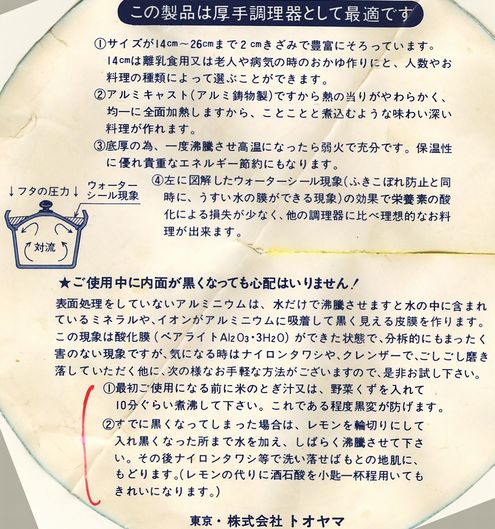 この製品は厚手調理器として最適です
①サイズが14cm～26cmまで2cmきざみで豊富にそろっています。
14cmは離乳食用又は老人や病気の時のおかゆ作りにと、人数やお
料理の種類によって選ぶことができます。
②アルミキャスト(アルミ鋳物製)ですから熱の当りがやわらかく、
均一に全面加熱しますから、ことことと煮込むような味わい深い
料理が作れます。
③底厚の為、一度沸騰させ高温になったら弱火で充分です。保温性
に優れ貴重なエネルギー節約にもなります。
④左に図解したウォーターシール現象(ふきこぼれ防止と同
時に、うすい水の膜ができる現象)の効果で栄養素の酸
化による損失が少なく、他の調理器に比べ理想的なお料
理が出来ます。
↓フタの圧力↓
ウォーター
シール現象
対流
★ご使用中に内面が黒くなっても心配はいりません！
表面処理をしていないアルミニウムは、水だけで沸騰させますと水の中に含まれ
ているミネラルや、イオンがアルミニウムに吸着して黒く見える皮膜を作ります。
この現象は酸化膜(ベアライトAl2O3・3H2O)ができた状態で、分析的にもまったく
害のない現象ですが、気になる時はナイロンタワシや、クレンザーで、ごしごし磨き
落していただく他に、次の様なお手軽な方法がございますので、是非お試し下さい。
①最初ご使用になる前に米のとぎ汁又は、野菜くずを入れて
10分ぐらい煮沸して下さい。これである程度黒変が防げます。
②すでに黒くなってしまった場合は、レモンを輪切りにして
入れ黒くなった所まで水を加え、しばらく沸騰させて下さ
い。その後ナイロンタワシ等で洗い落せばもとの地肌に、
もどります。(レモンの代りに酒石酸を小匙一杯程用いても
きれいになります。)
東京・株式会社トオヤマ